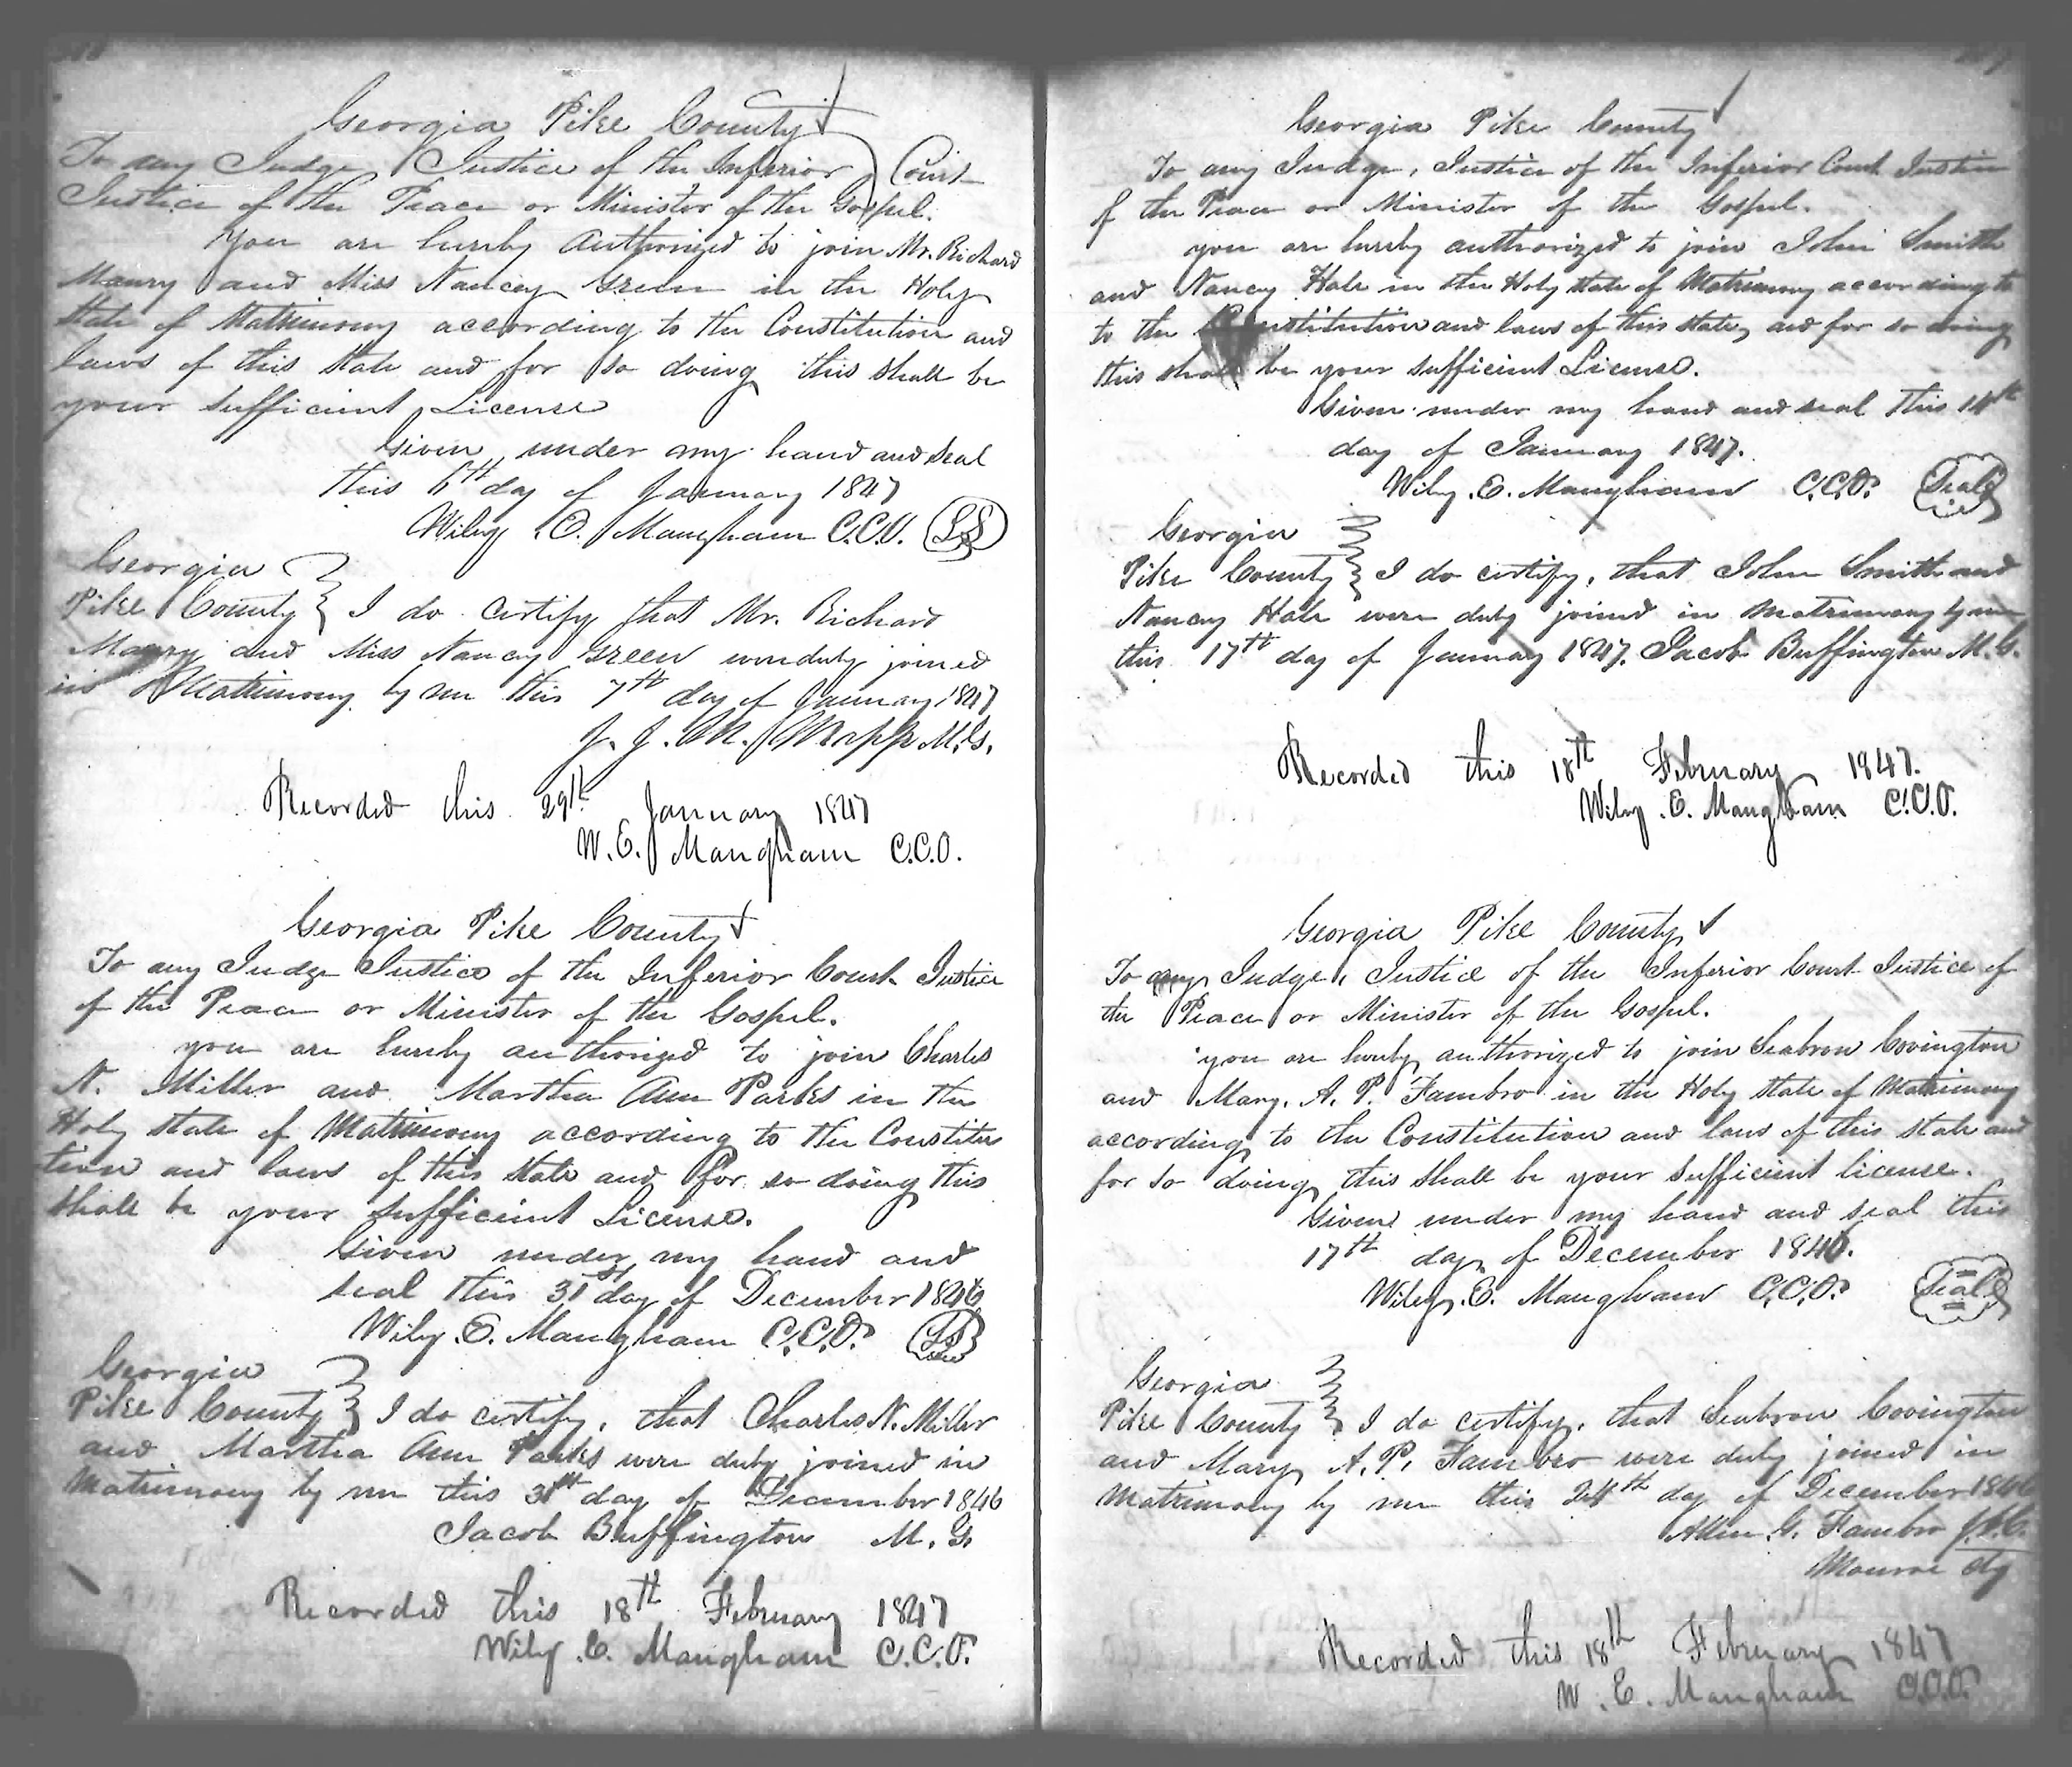 Georgia Pike County
To any Judge Justice of the Inferior Court
Justice of the Peace or Minister of the Gospel.
You are hereby Authorized to join Mr. Richard
Maury and Miss Nancy Green in the Holy
State of Matrimony according to the Constitution and
laws of this State and for so doing this shall be
your sufficient License
Given under my hand and seal
this 6th day of January 1847
Wiley E. Mangham C.C.O. LS
Georgia
Pike County I do certify that Mr. Richard
Maury and Miss Nancy Green were duly joined
in Matrimony by me this 7th day of January 1847
J. J. M. Mapp M.G.
Recorded this 29th January 1847
W. E. Mangham C.C.O.
Georgia Pike County
To any Judge Justice of the Inferior Court Justice
of the Peace or Minister of the Gospel.
you are hereby authorized to join Charles
N. Miller and Martha Ann Parks in the
Holy state of Matrimony according to the Constitu
tion and laws of this State and for so doing this
shall be your sufficient License.
Given under my hand and
seal this 31st day of December 1846
Wiley E. Mangham C.C.O. LS
Georgia
Pike County I do certify, that Charles N. Miller
and Martha Ann Parks were duly joined in
Matrimony by me this 31st day of December 1846
Jacob Buffington M. G.
Recorded this 18th February 1847
Wiley E. Mangham C.C.O.
Georgia Pike County
To any Judge, Justice of the Inferior Court Justice
of the Peace or Minister of the Gospel.
you are hereby authorized to join John Smith
and Nancy Hale in the Holy state of Matrimony according to
to the Constitution and laws of this state, and for so doing
this shall be your sufficient License.
Given under my hand and seal this 14th
day of January 1847.
Wiley. E. Mangham C.C.O. Seal
Georgia
Pike County I do certify, that John Smith and
Nancy Hale were duly joined in matrimony by me
this 17th day of January 1847. Jacob Buffington M.G.
Recorded this 18th February 1847.
Wiley E. Mangham C.C.O.
Georgia Pike County
To any Judge, Justice of the Inferior Court Justice of
the Peace or Minister of the Gospel.
you are hereby authorized to join Seabron Covington
and Mary. A. P. Fambro in the Holy state of Matrimony
according to the Constitution and laws of this state and
for so doing this shall be your sufficient license.
Given under my hand and seal this
17th day of December 1846.
Wiley. E. Mangham C.C.O. Seal
Georgia
Pike County I do certify, that Seabron Covington
and Mary A. P. Fambro were duly joined in
Matrimony by me this 24th day of December 1846
Allen G. Fambro J.I.C.
Monroe Cty
Recorded this 18th February 1847
W. E. Mangham C.C.O.